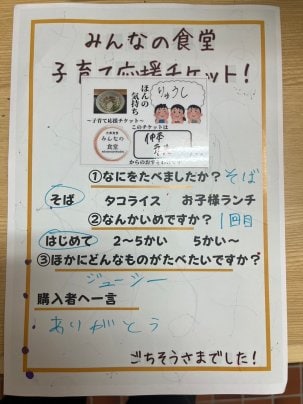 みんなの食堂
子育て応援チケット!
ほんの気持ち
りゅうし
~子育て応援チケット~
このチケットは
みんなの食堂
からのおすそわけです
①なにをたべましたか? そば
そば タコライス お子様ランチ
②なんかいめですか? 1回目
はじめて 2~5かい 5かい~
③ほかにどんなものがたべたいですか?
ジューシー
購入者へ一言
ありがとう
ごちそうさまでした!